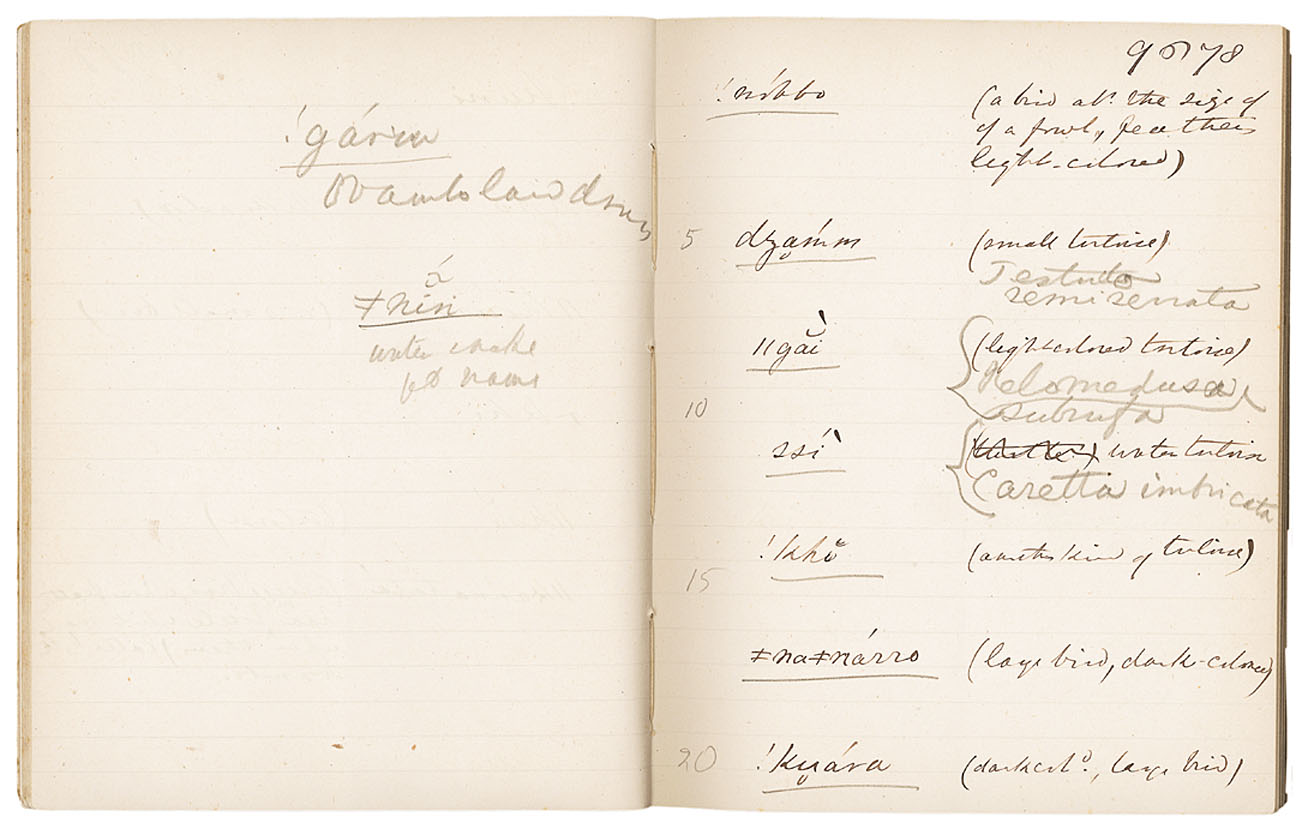 !gárra
Ovambo land
á
ǂnísi
water snake
9678
!nábbo
(a bird abt. the size of
of a fowl, feathers
light-colored)
5 dzạḿm (small tortoise)
Testudo
semiserrata
ǁgăì (light-colored tortoise)
Pelomedusa
10 subrufa
ssí̀ water tortoise
Caretta imbricata
!khŏ (another kind of tortoise)
15
ǂnaǂnárro (large bird, dark-colored)
20 !kụára (darkcold., large bird)